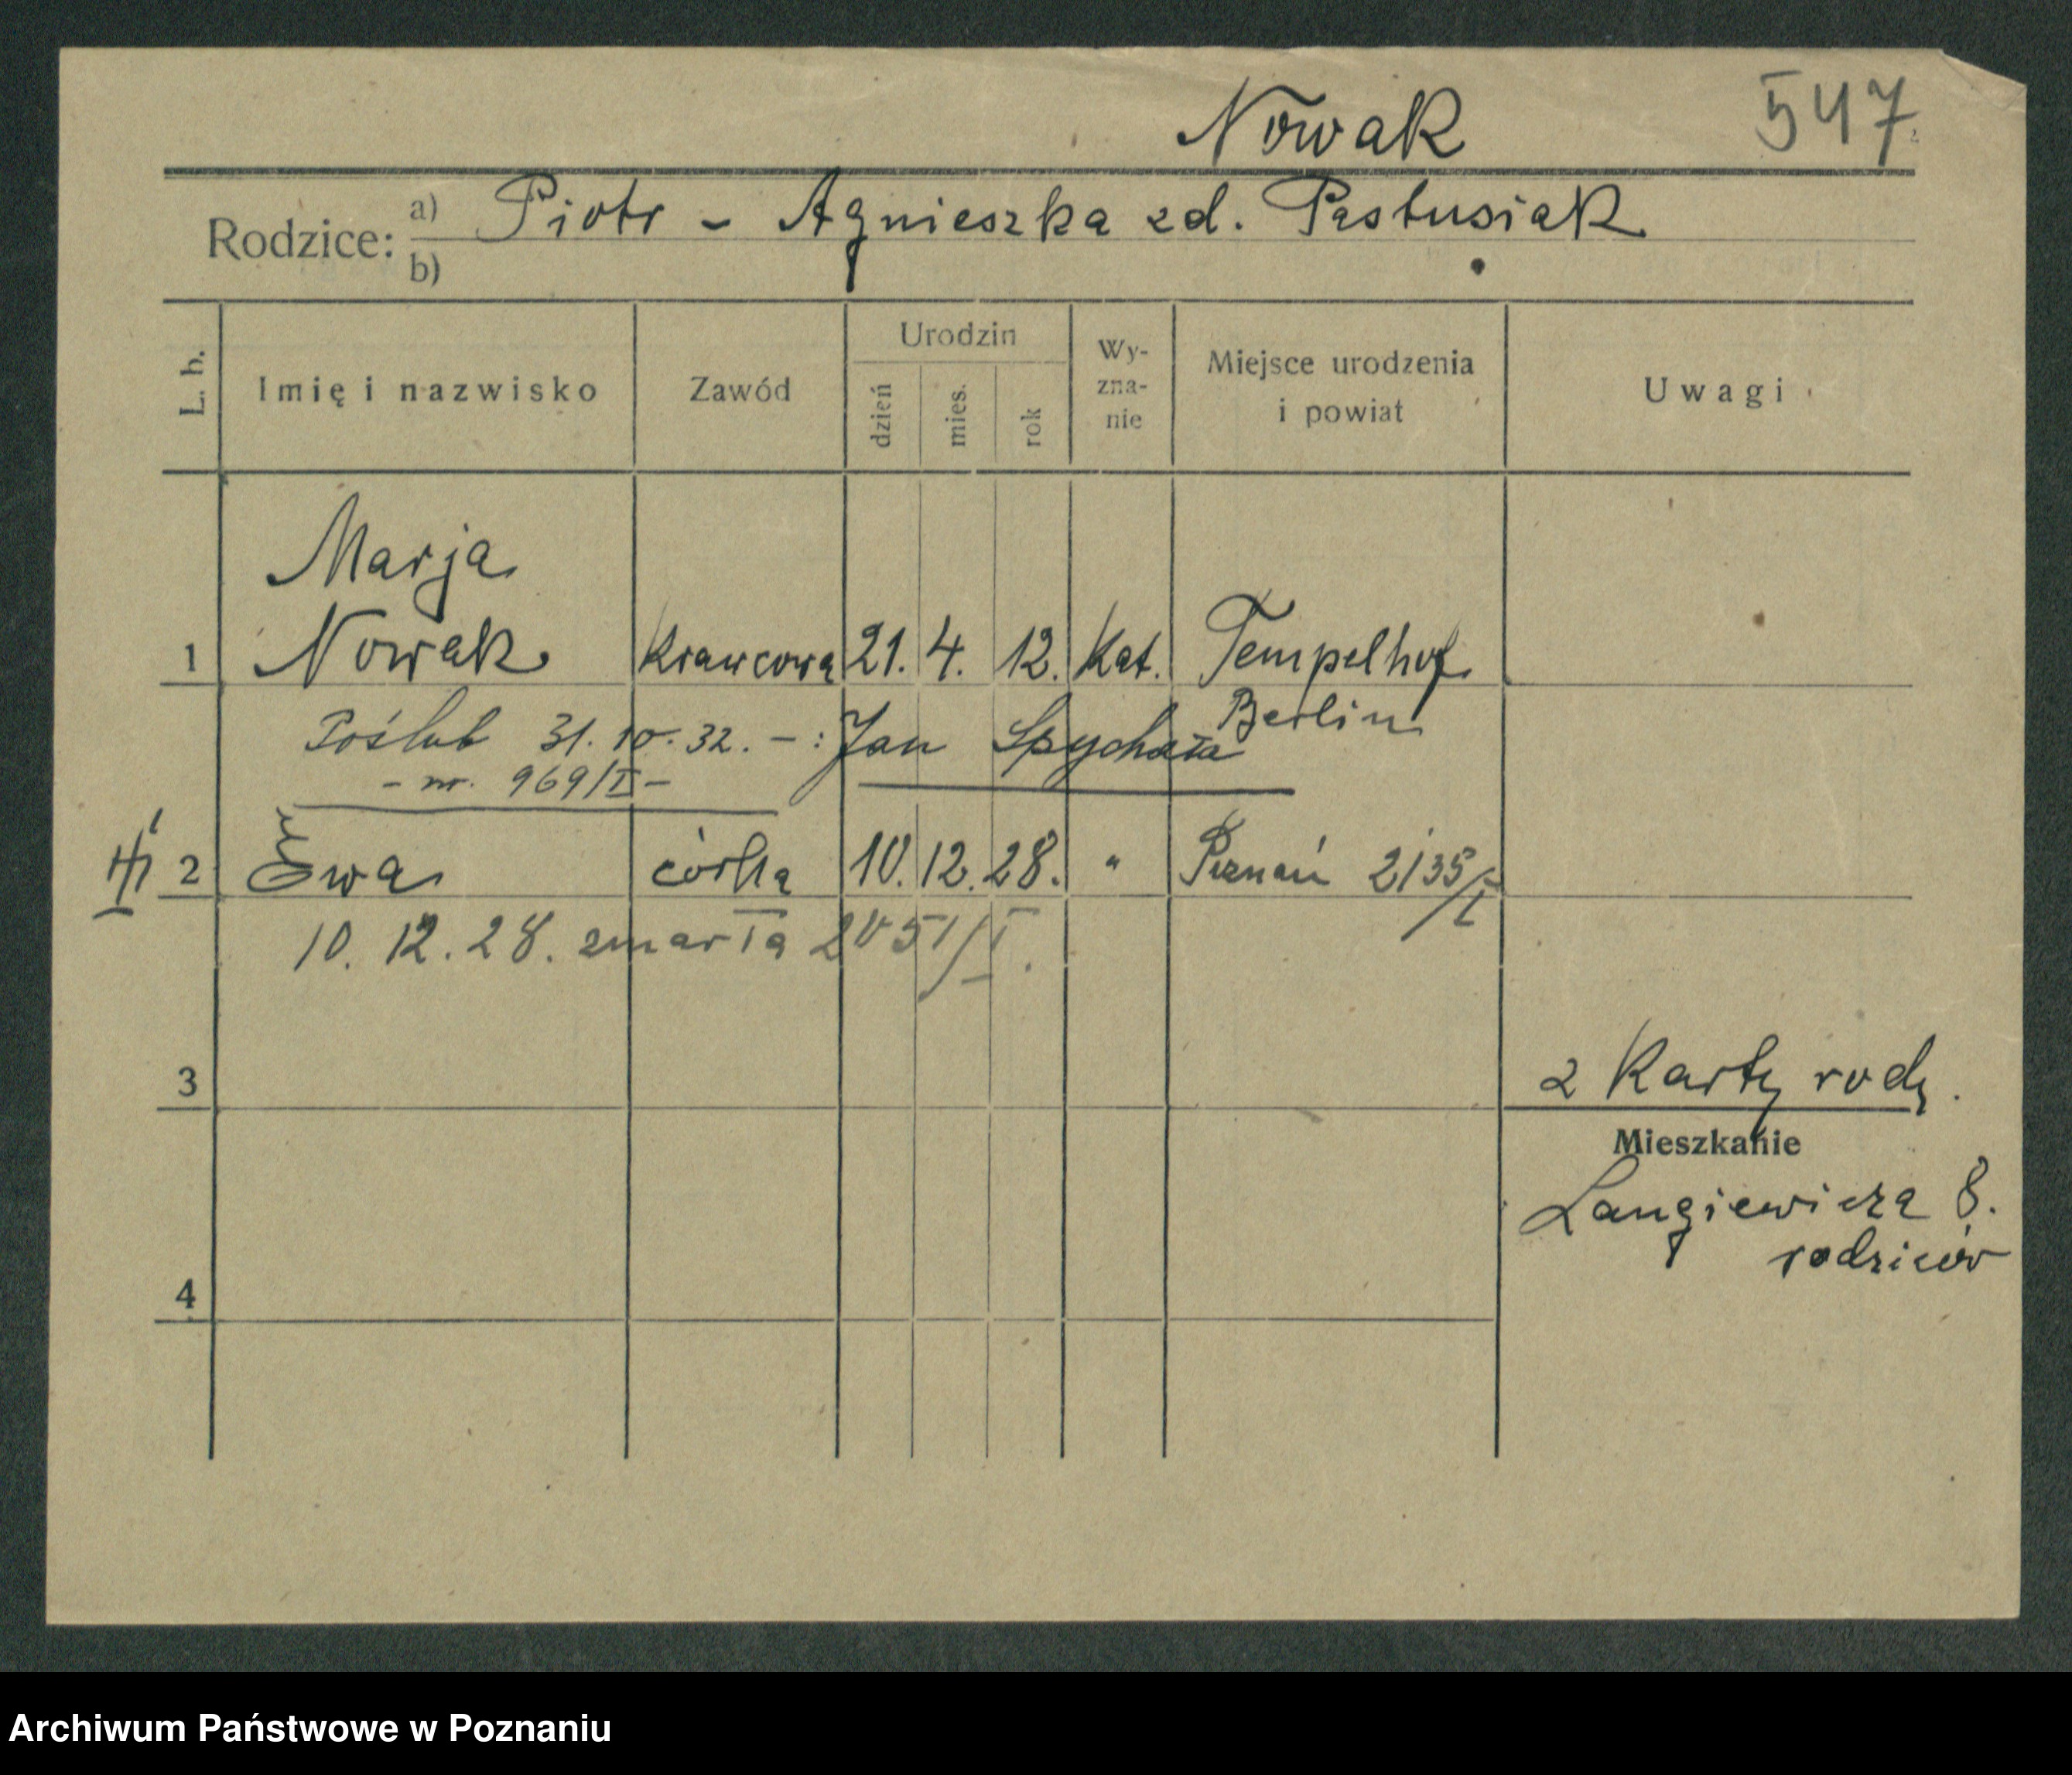 Nowak 547.
Rodzice: a) Piotr - Agnieszka zd. Pastusiak
b)
L. b. Imię i nazwisko Zawód Urodzin dzień mies. rok Wy-zna-nie Miejsce urodzenia i powiat Uwagi
Marja
1 Nowak Krawcowa 21. 4. 12. Kat. Tempelhof
Berlin
Poślub 31. 10. 32. - : Jan Spychała
- nr. 969/I -
2 Ewa córka 10. 12. 28. " Poznań 2135/I
10. 12. 28. zmarła 2051/I.
3
z Karty rodz.
Mieszkanie
Langiewicza 8.
rodziców
4
Archiwum Państwowe w Poznaniu